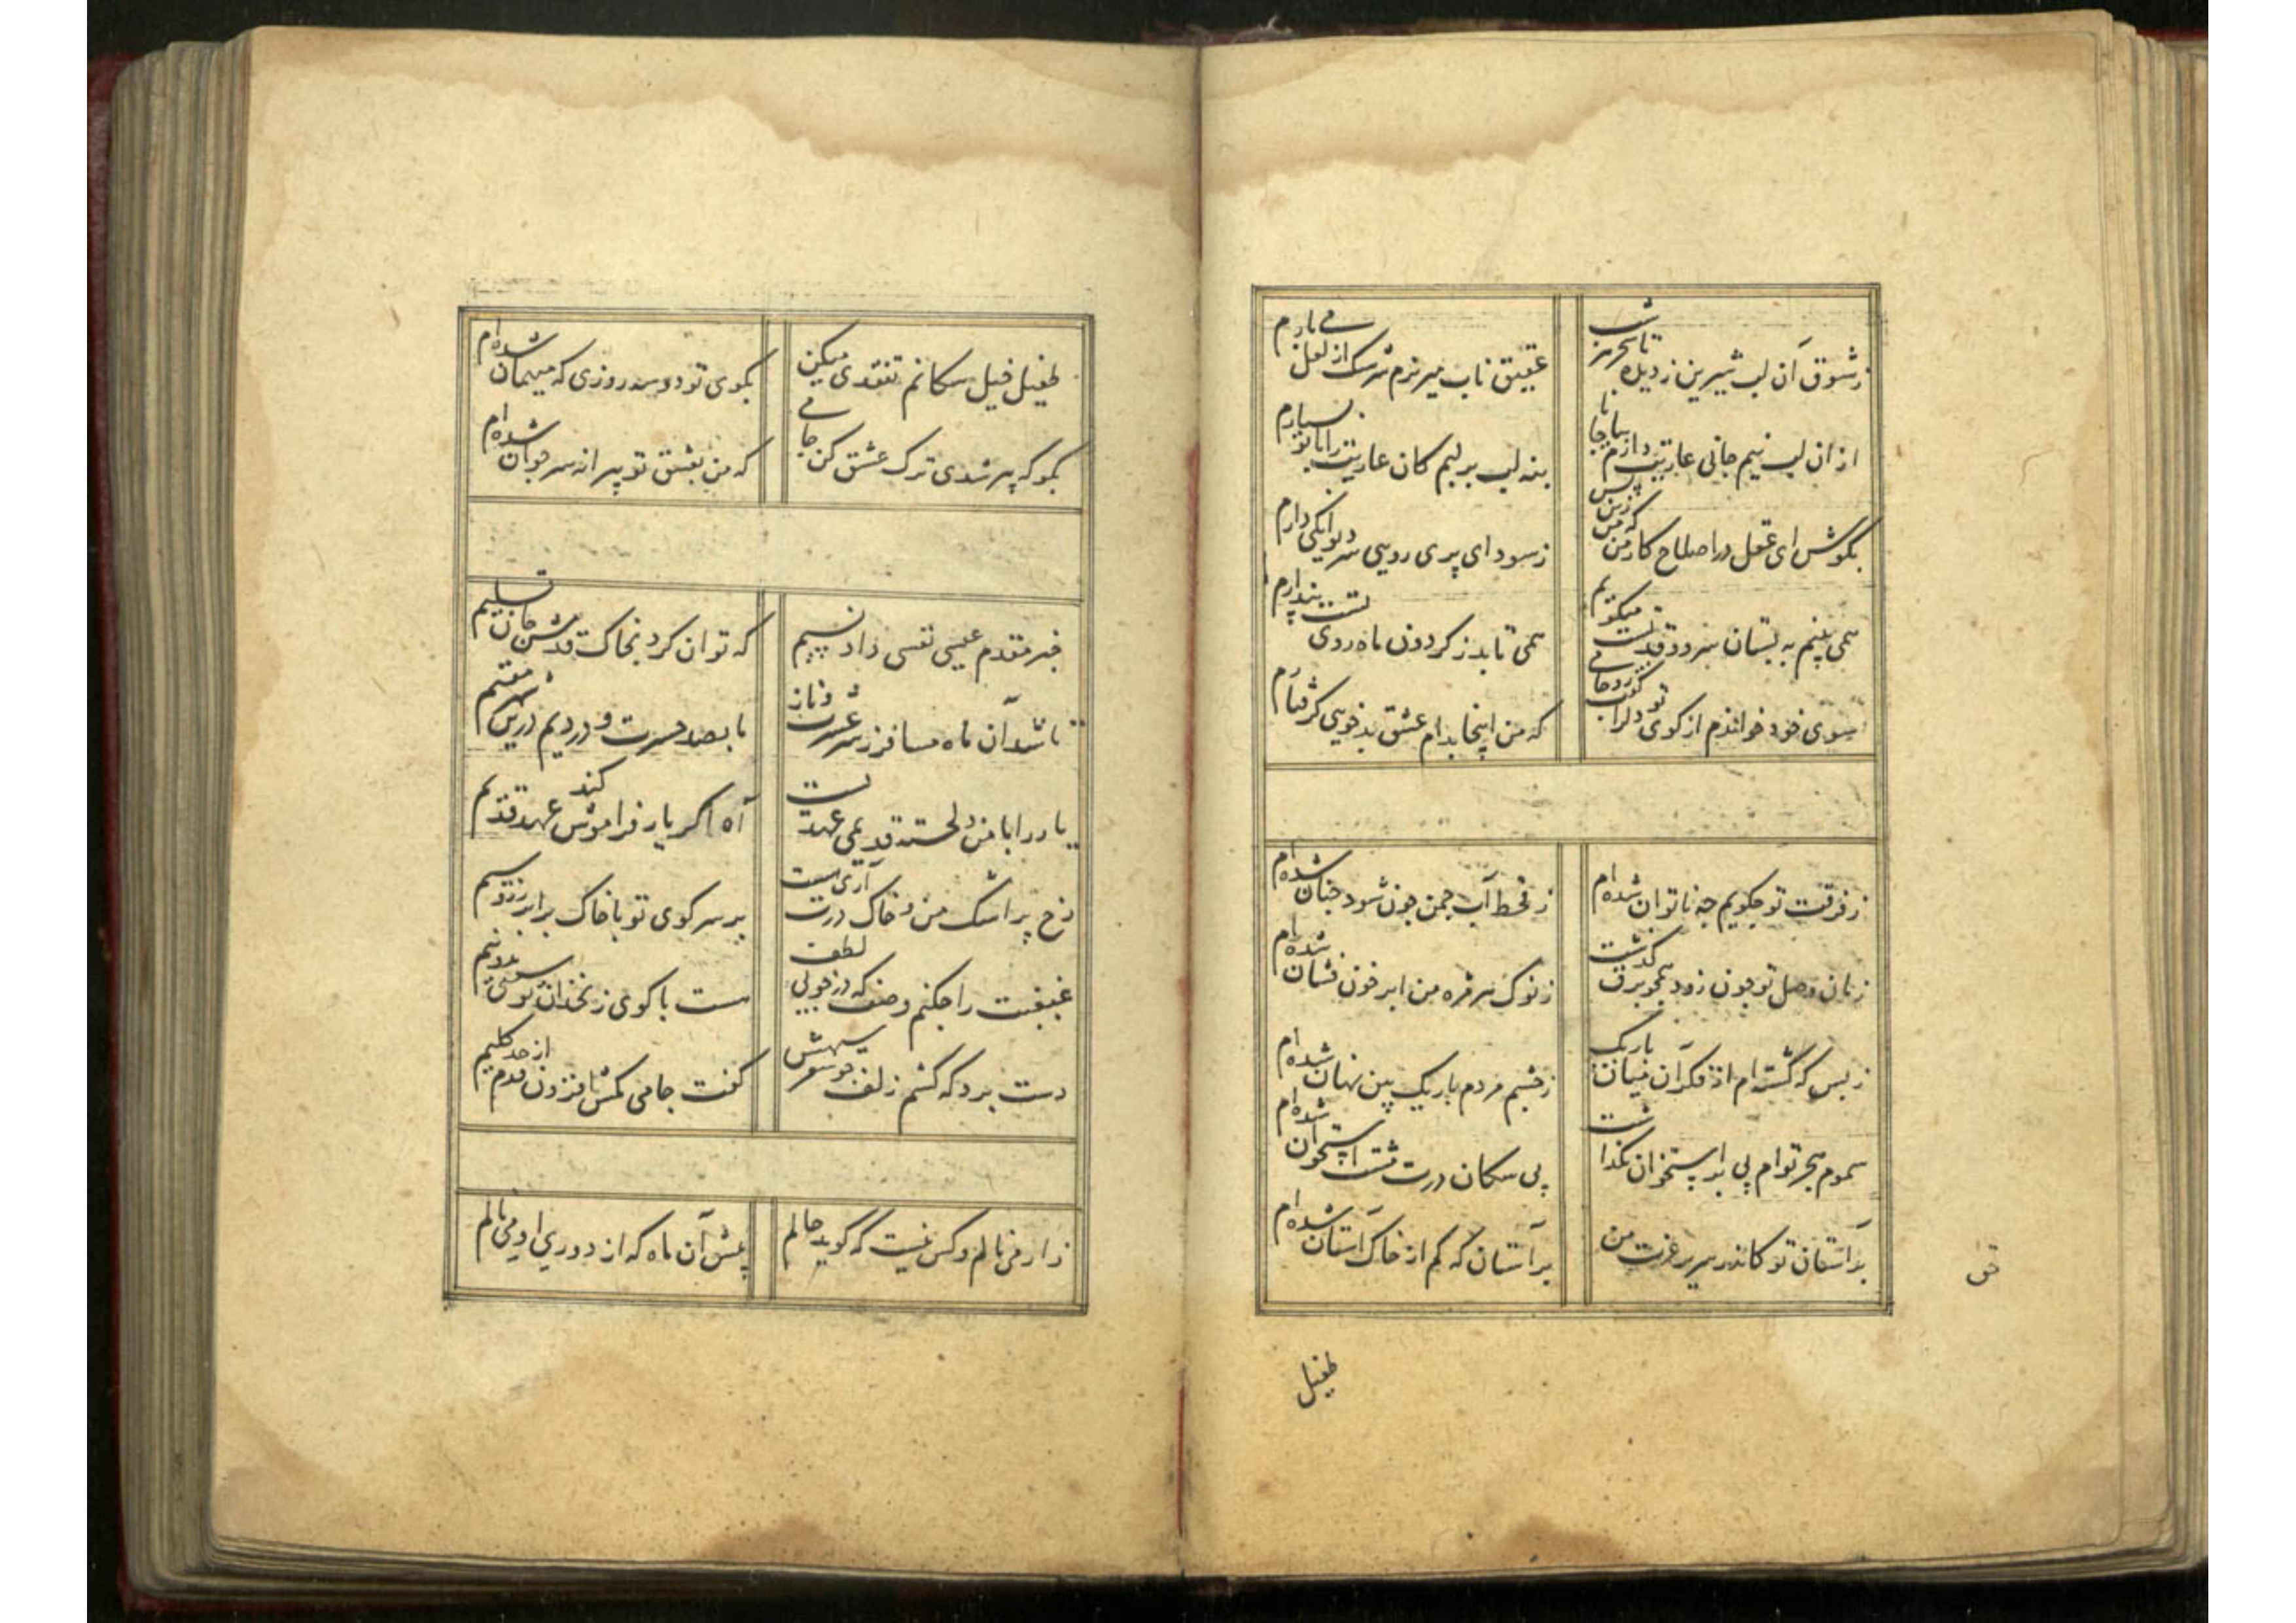 ز شوق آن لب شیرین ز دیده شب تا سحر
عقیق ناب میریزم سرشک از لعل می بارم
از ان لب نیم جانی عاریت دارم بیا جانا
بنه لب بر لبم کان عاریت را با تو بسپارم
بکوش ای عقل در اصلاح کار من که من زین پس
ز سودای پری رویی سر دیوانگی دارم
همی بینم به بستان سرو قدتست میکویم
همی تابد ز کردون ماه روی تست پندارم
سوی خود خواندم از کوی دلبر
که من اینجا بدام عشق بدخویی کرفتارم
ز فرقت تو چکویم چه ناتوان شده ام
ز قحط آب چمن چون شود چنان شده ام
زمان وصل تو چون زود همچو برق کذشت
ز نوک هر مژه من ابر خون فشان شده ام
ز بس که کشته ام از فکر آن میان باریک
ز چشم مردم باریک بین نهان شده ام
سموم هجر توام پی بر استخوان نکذاشت
پی سکان درت مشت استخوان شده ام
بر آستان تو کاندر سریر عزت من
بر آستان که کم از خاک آستان شده ام
طفیل
طفیل خیل سکانم تفقدی میکن
بکوی تو دو سه روزی که میهمان شده ام
مکو که پیر شدی ترک عشق کن جامی
که من بعشق تو پیرانه سر جوان شده ام
خبر مقدم عیسی نفسی داد نسیم
که توان کرد بخاک قدمش جان تسلیم
تا شد آن ماه مسافر ز سر عشرت و ناز
ما بصد حسرت و دردیم درین شهر مقیم
یار را با من دلخسته قدیمی عهدیست
آه اکر یار فراموش کند عهد قدیم
رخ پر اشک من و خاک درت آری هست
بر سر کوی تو با خاک برابر زر و سیم
غبغبت را چکنم وصف که در خوبی لطف
هست با کوی زنخدان تو سیبی بدو نیم
دست برد که کشم زلف چو
کفت جامی مکش افزون قدم از حد کلیم
زار می نالم و کس نیست که کوید حالم
پیش آن ماه که از دوری او می نالم